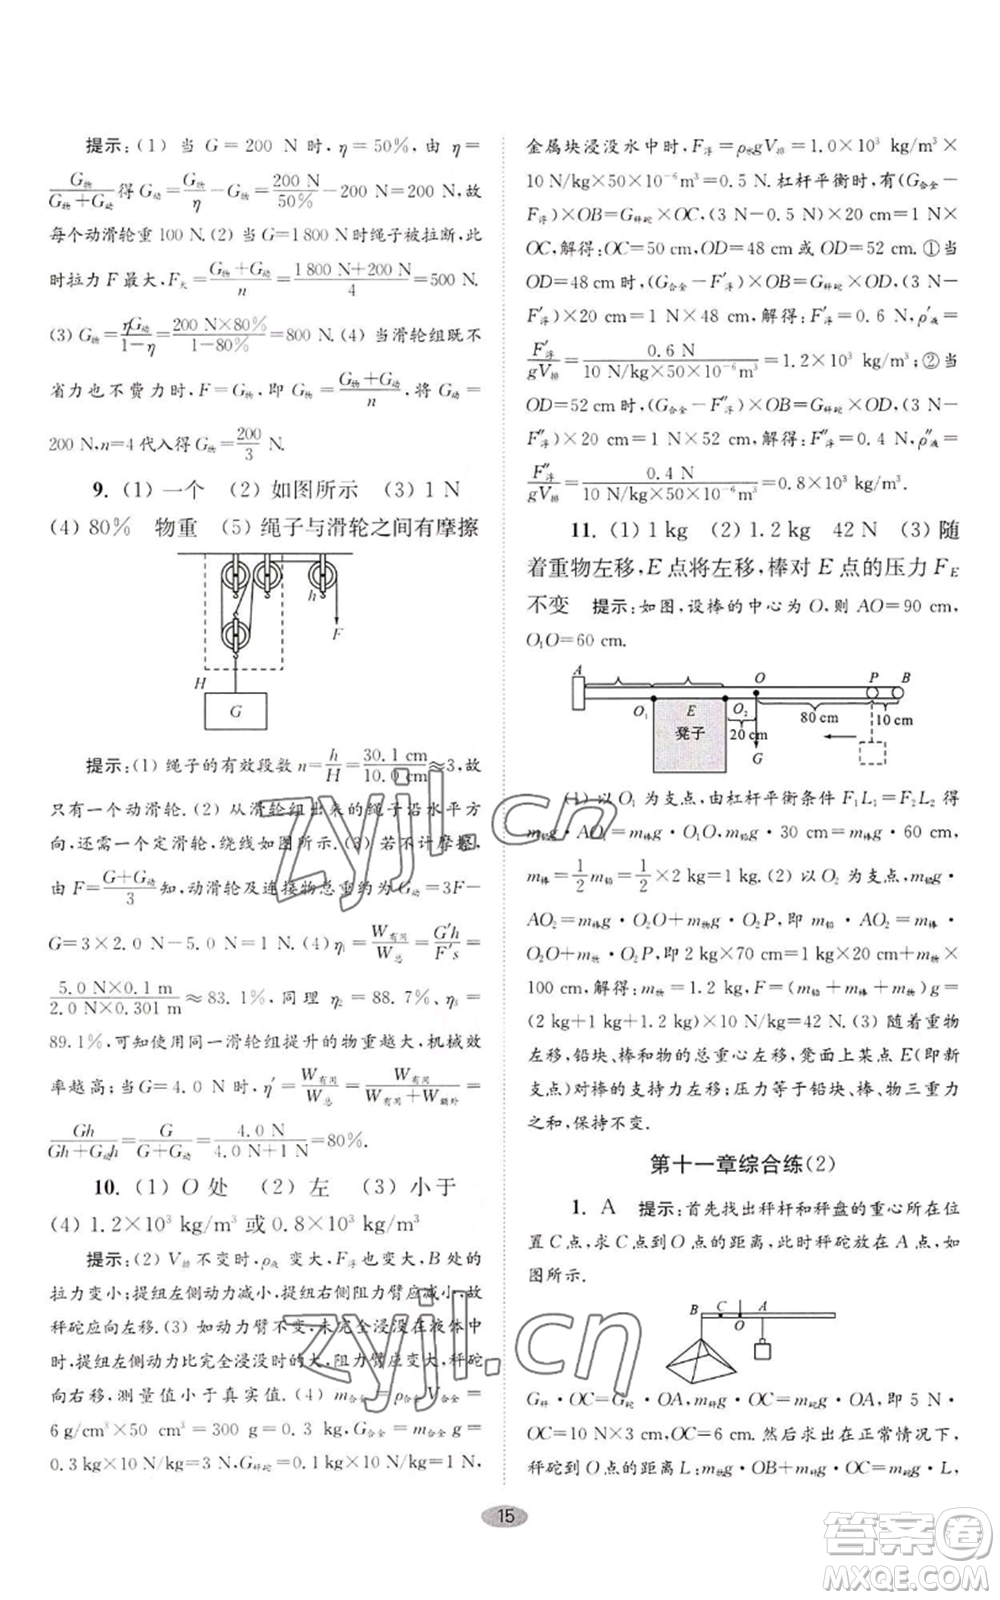 提示:(1) 当 G=200 N 时, η=50%, 由 η=
G物/(G物+G动) 得 G动=G物/η-G物=200 N/50%-200 N=200 N,故
每个动滑轮重 100 N.(2) 当 G=1 800 N 时绳子被拉断,此
时拉力 F 最大,F大=(G物+G动)/n=(1 800 N+200 N)/4=500 N.
(3) G物=ηG动/(1-η)=200 N×80%/(1-80%)=800 N.(4) 当滑轮组既不
省力也不费力时,F=G物,即 G物=(G物+G动)/n,将 G动=
200 N、n=4 代入得 G物=200/3 N.
9. (1) 一个 (2) 如图所示 (3) 1 N
(4) 80% 物重 (5) 绳子与滑轮之间有摩擦
h
F
H
G
提示:(1) 绳子的有效段数 n=h/H=30.1 cm/10.0 cm≈3,故
只有一个动滑轮.(2) 从滑轮组出来的绳子沿水平方
向,增加一个定滑轮,绕线如图所示.(3) 若不计摩擦,
由 F=(G+G动)/3 知,动滑轮及连接物总重约为 G动=3F-
G=3×2.0 N-5.0 N=1 N.(4) η1=W有用/W总=G'h/F's=
5.0 N×0.1 m/2.0 N×0.301 m≈83.1%,同理 η2=88.7%、η3=
89.1%,可知使用同一滑轮组提升的物重越大,机械效
率越高;当 G=4.0 N 时,η'=W有用/W总=W有用/(W有用+W额外)=
Gh/(Gh+G动h)=G/(G+G动)=4.0 N/(4.0 N+1 N)=80%.
10. (1) O 处 (2) 左 (3) 小于
(4) 1.2×10³ kg/m³ 或 0.8×10³ kg/m³
提示:(2) V排 不变时,ρ液 变大,F浮 也变大,B 处的
拉力变小;提纽左侧动力减小,提纽右侧阻力臂应减小,故
秤砣应向左移.(3) 如动力臂不变,未完全浸没在液体中
时,提纽左侧动力比完全浸没时的大,阻力臂应变大,秤砣
向右移,测量值小于真实值.(4) m合金=ρ合金V合金=
6 g/cm³×50 cm³=300 g=0.3 kg,G合金=m合金g=
0.3 kg×10 N/kg=3 N,G秤砣=0.1 kg×10 N/kg=1 N,
金属块浸没水中时,F浮=ρ水gV排=1.0×10³ kg/m³×
10 N/kg×50×10⁻⁶m³=0.5 N.杠杆平衡时,有(G合金-
F浮)×OB=G秤砣×OC,(3 N-0.5 N)×20 cm=1 N×
OC,解得:OC=50 cm,OD=48 cm 或 OD=52 cm.①当
OD=48 cm 时,(G合金-F'浮)×OB=G秤砣×OD,(3 N-
F'浮)×20 cm=1 N×48 cm,解得:F'浮=0.6 N,ρ'液=
F'浮/gV排=0.6 N/(10 N/kg×50×10⁻⁶m³)=1.2×10³ kg/m³;②当
OD=52 cm 时,(G合金-F''浮)×OB=G秤砣×OD,(3 N-
F''浮)×20 cm=1 N×52 cm,解得:F''浮=0.4 N,ρ''液=
F''浮/gV排=0.4 N/(10 N/kg×50×10⁻⁶m³)=0.8×10³ kg/m³.
11. (1) 1 kg (2) 1.2 kg 42 N (3) 随
着重物左移,E 点将左移,棒对 E 点的压力 FE
不变 提示:如图,设棒的中心为 O,则 AO=90 cm,
O1O=60 cm.
A O P B
O1 E O2 80 cm 10 cm
凳子 20 cm
G
(1) 以 O1 为支点,由杠杆平衡条件 F1L1=F2L2 得
m铅g·AO1=m棒g·O1O,m铅g·30 cm=m棒g·60 cm,
m棒=1/2 m铅=1/2×2 kg=1 kg.(2) 以 O2 为支点,m铅g·
AO2=m棒g·O2O+m物g·O2P,即 m铅·AO2=m棒·
O2O+m物·O2P,即 2 kg×70 cm=1 kg×20 cm+m物×
100 cm,解得:m物=1.2 kg,F=(m铅+m棒+m物)g=
(2 kg+1 kg+1.2 kg)×10 N/kg=42 N.(3) 随着重物
左移,铅块、棒和物的总重心左移,凳面上某点 E(即新
支点)对棒的支持力左移;压力等于铅块、棒、物三重力
之和,保持不变.
第十一章综合练(2)
1. A 提示:首先找出秤杆和秤盘的重心所在位
置 C 点,求 C 点到 O 点的距离,此时秤砣放在 A 点,如
图所示.
B C A
O
G秤·OC=G砣·OA,m秤g·OC=m砣g·OA,即 5 N·
OC=10 N×3 cm.然后求出在正常情况下,
秤砣到 O 点的距离 L:m物g·OB+m秤g·OC=m砣g·L,
15
zyjl.cn
zyjl.cn
答案卷
MXQE.COM